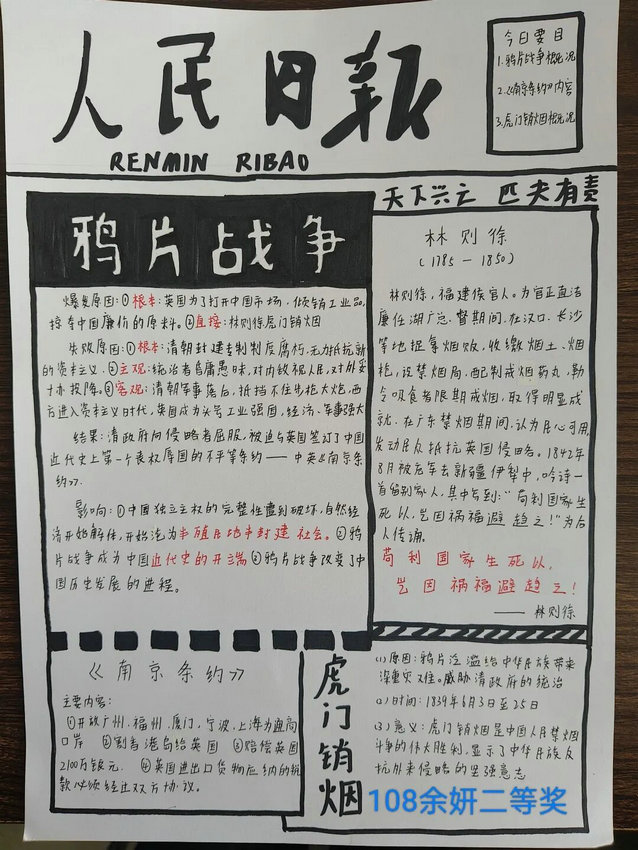 人民日報
RENMIN RIBAO
今日要目
1.鸦片战争概况
2.《南京条约》内容
3.虎门销烟概况
天下兴亡 匹夫有责
鸦片战争
爆发原因:①根本:英国为了打开中国市场,倾销工业品,
掠夺中国廉价的原料。②直接:林则徐虎门销烟
失败原因:①根本:清朝封建专制制度腐朽,无力抵抗新
的资本主义。②主观:统治者昏庸愚昧,对内敌视人民,对外妥
协投降。③客观:清朝军事落后,抵挡不住先枪大炮,西
方进入资本主义时代,英国成为头号工业强国,经济、军事强大
结果:清政府向侵略者屈服,被迫与英国签订了中国
近代史上第一个丧权辱国的不平等条约——中英《南京条
约》.
影响:①中国独立主权的完整性遭到破坏,自然经
济开始解体,开始沦为半殖民地半封建社会。②鸦
片战争成为中国近代史的开端③鸦片战争改变了中
国历史发展的进程。
林则徐
(1785-1850)
林则徐,福建侯官人。为官正直清
廉任湖广总督期间,在汉口、长沙
等地捉拿烟贩,收缴烟土、烟
枪,设禁烟局,配制戒烟药丸,勒
令吸食者限期戒烟,取得明显成
就.在广东禁烟期间,认为民心可用,
发动民众抵抗英国侵略。1842年
8月被发军去新疆伊犁中,吟诗一
首留别家人,其中写到:“苟利国家生
死以,岂因祸福避趋之!”为后
人传诵。
苟利国家生死以,
岂因祸福避趋之!
——林则徐
《南京条约》
主要内容:
①开放广州、福州、厦门、宁波、上海为通商
口岸 ②割香港岛给英国 ③赔偿英国
2100万银元. ④英国进出口货物应纳的税
款必须经过双方协议。
虎门销烟
(1)原因:鸦片泛滥给中华民族带来
深重灾难。威胁清政府的统治
(2)时间:1839年6月3日至25日
(3)意义:虎门销烟是中国人民禁烟
斗争的伟大胜利,显示了中华民族反
抗外来侵略的坚强意志
108余妍二等奖